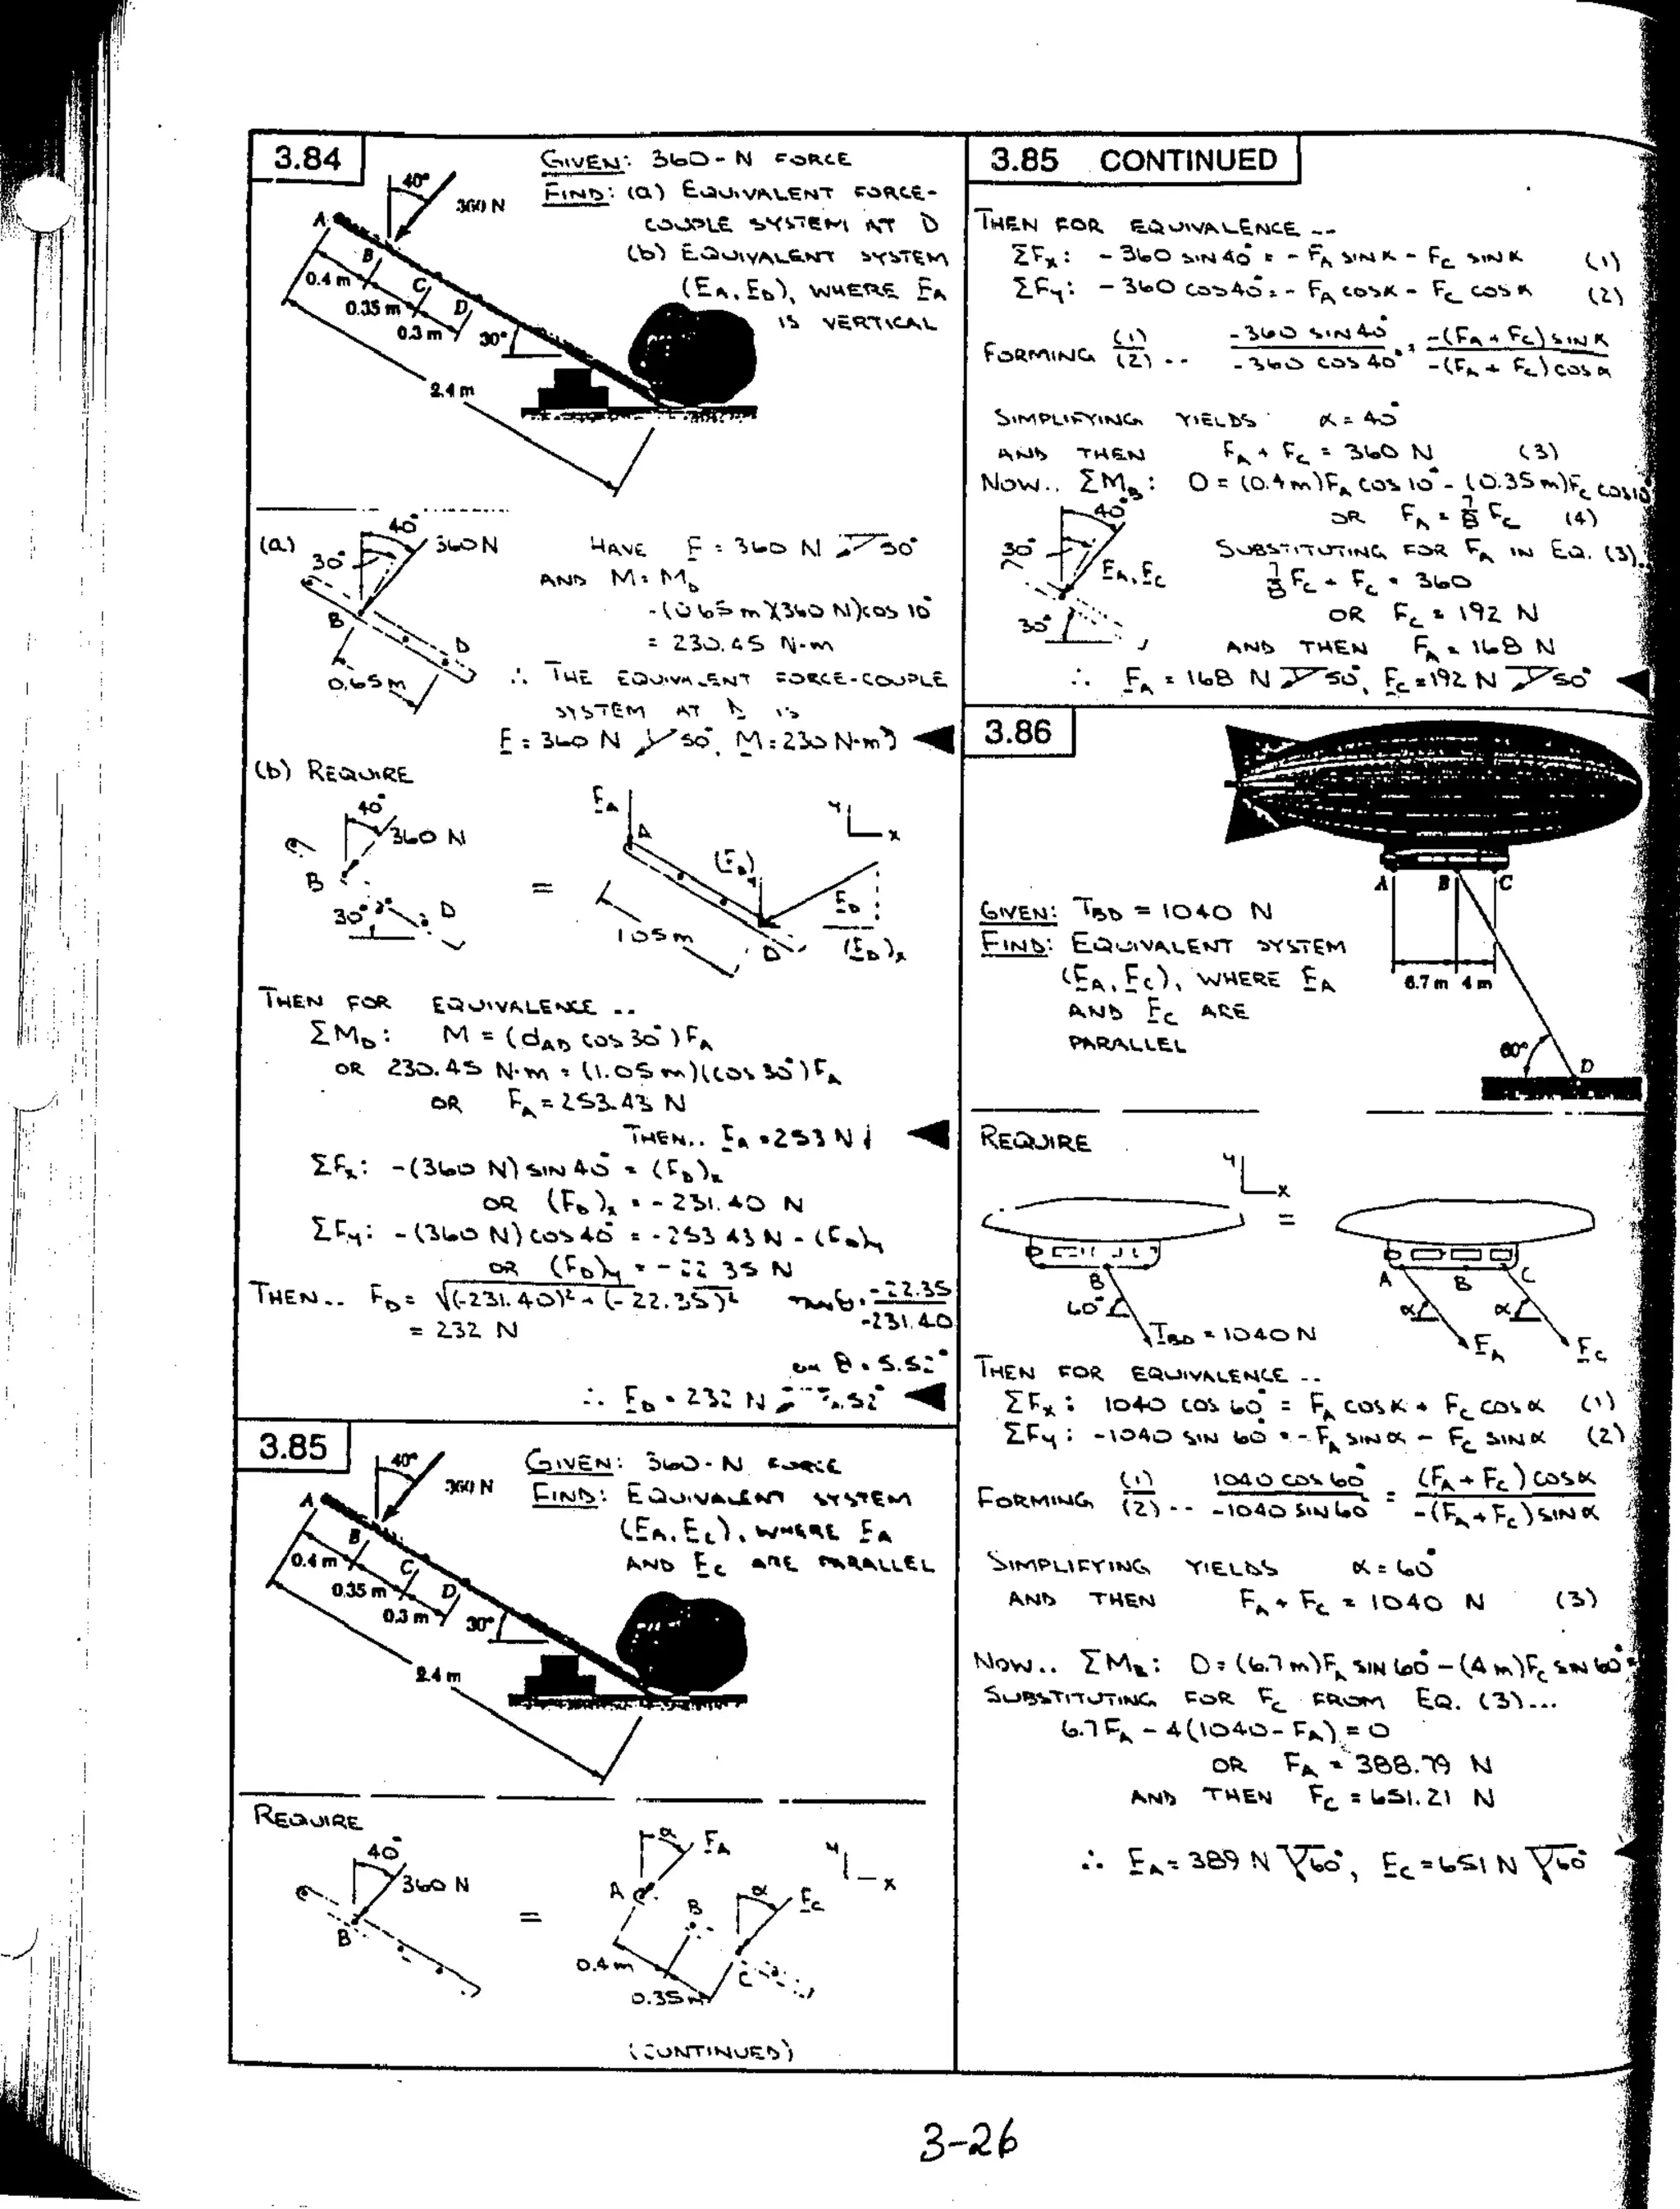 3.84
GIVEN: 360-N FORCE
FIND: (a) EQUIVALENT FORCE-
COUPLE SYSTEM AT D
(b) EQUIVALENT SYSTEM
(F_A, F_D), WHERE F_A
IS VERTICAL
40°
360 N
A
B
C
D
0.4 m
0.35 m
0.3 m
30°
2.4 m
(a)
40°
30°
360 N
B
D
0.65 m
HAVE F = 360 N 50°
AND M = M_D
= (0.65 m)(360 N)cos 10°
= 230.45 N·m
∴ THE EQUIVALENT FORCE-COUPLE
SYSTEM AT D IS
F = 360 N 50°, M = 230 N·m
(b) REQUIRE
40°
360 N
B
30°
D
=
F_A
A
(F_D)y
F_D
(F_D)x
1.05 m
D
y
x
THEN FOR EQUIVALENCE --
ΣM_D: M = (d_AD cos 30°) F_A
OR 230.45 N·m = (1.05 m)(cos 30°) F_A
OR F_A = 253.43 N
THEN.. F_A = 253 N ↓
ΣFx: -(360 N) SIN 40° = (F_D)x
OR (F_D)x = -231.40 N
ΣFy: -(360 N) cos 40° = -253.43 N - (F_D)y
OR (F_D)y = -22.35 N
THEN.. F_D = √(-231.40)² + (-22.35)² tan θ = -22.35 / -231.40
= 232 N
OR θ = 5.52°
∴ F_D = 232 N 5.52°
3.85
GIVEN: 360-N FORCE
FIND: EQUIVALENT SYSTEM
(F_A, F_C), WHERE F_A
AND F_C ARE PARALLEL
40°
360 N
A
B
C
D
0.4 m
0.35 m
0.3 m
30°
2.4 m
REQUIRE
40°
360 N
B
=
α
F_A
A
B
α
F_C
C
0.4 m
0.35 m
y
x
(CONTINUED)
3.85 CONTINUED
THEN FOR EQUIVALENCE --
ΣFx: -360 SIN 40° = -F_A SIN α - F_C SIN α (1)
ΣFy: -360 cos 40° = -F_A cos α - F_C cos α (2)
FORMING (1)/(2) -- -360 SIN 40° / -360 cos 40° = -(F_A + F_C) SIN α / -(F_A + F_C) cos α
SIMPLIFYING YIELDS α = 40°
AND THEN F_A + F_C = 360 N (3)
NOW.. ΣM_B: 0 = (0.4 m)F_A cos 10° - (0.35 m)F_C cos 10°
OR F_A = 7/8 F_C (4)
40°
30°
F_A, F_C
30°
SUBSTITUTING FOR F_A IN EQ. (3)..
7/8 F_C + F_C = 360
OR F_C = 192 N
AND THEN F_A = 168 N
∴ F_A = 168 N 50°, F_C = 192 N 50°
3.86
A
B
C
6.7 m
4 m
60°
D
GIVEN: T_BD = 1040 N
FIND: EQUIVALENT SYSTEM
(F_A, F_C), WHERE F_A
AND F_C ARE
PARALLEL
REQUIRE
y
x
=
B
60°
T_BD = 1040 N
A
B
C
α
α
F_A
F_C
THEN FOR EQUIVALENCE --
ΣFx: 1040 cos 60° = F_A cos α + F_C cos α (1)
ΣFy: -1040 SIN 60° = -F_A SIN α - F_C SIN α (2)
FORMING (1)/(2) -- 1040 cos 60° / -1040 SIN 60° = (F_A + F_C) cos α / -(F_A + F_C) SIN α
SIMPLIFYING YIELDS α = 60°
AND THEN F_A + F_C = 1040 N (3)
NOW.. ΣM_B: 0 = (6.7 m)F_A SIN 60° - (4 m)F_C SIN 60°
SUBSTITUTING FOR F_C FROM EQ. (3)...
6.7 F_A - 4(1040 - F_A) = 0
OR F_A = 388.79 N
AND THEN F_C = 651.21 N
∴ F_A = 389 N 60°, F_C = 651 N 60°
3-26